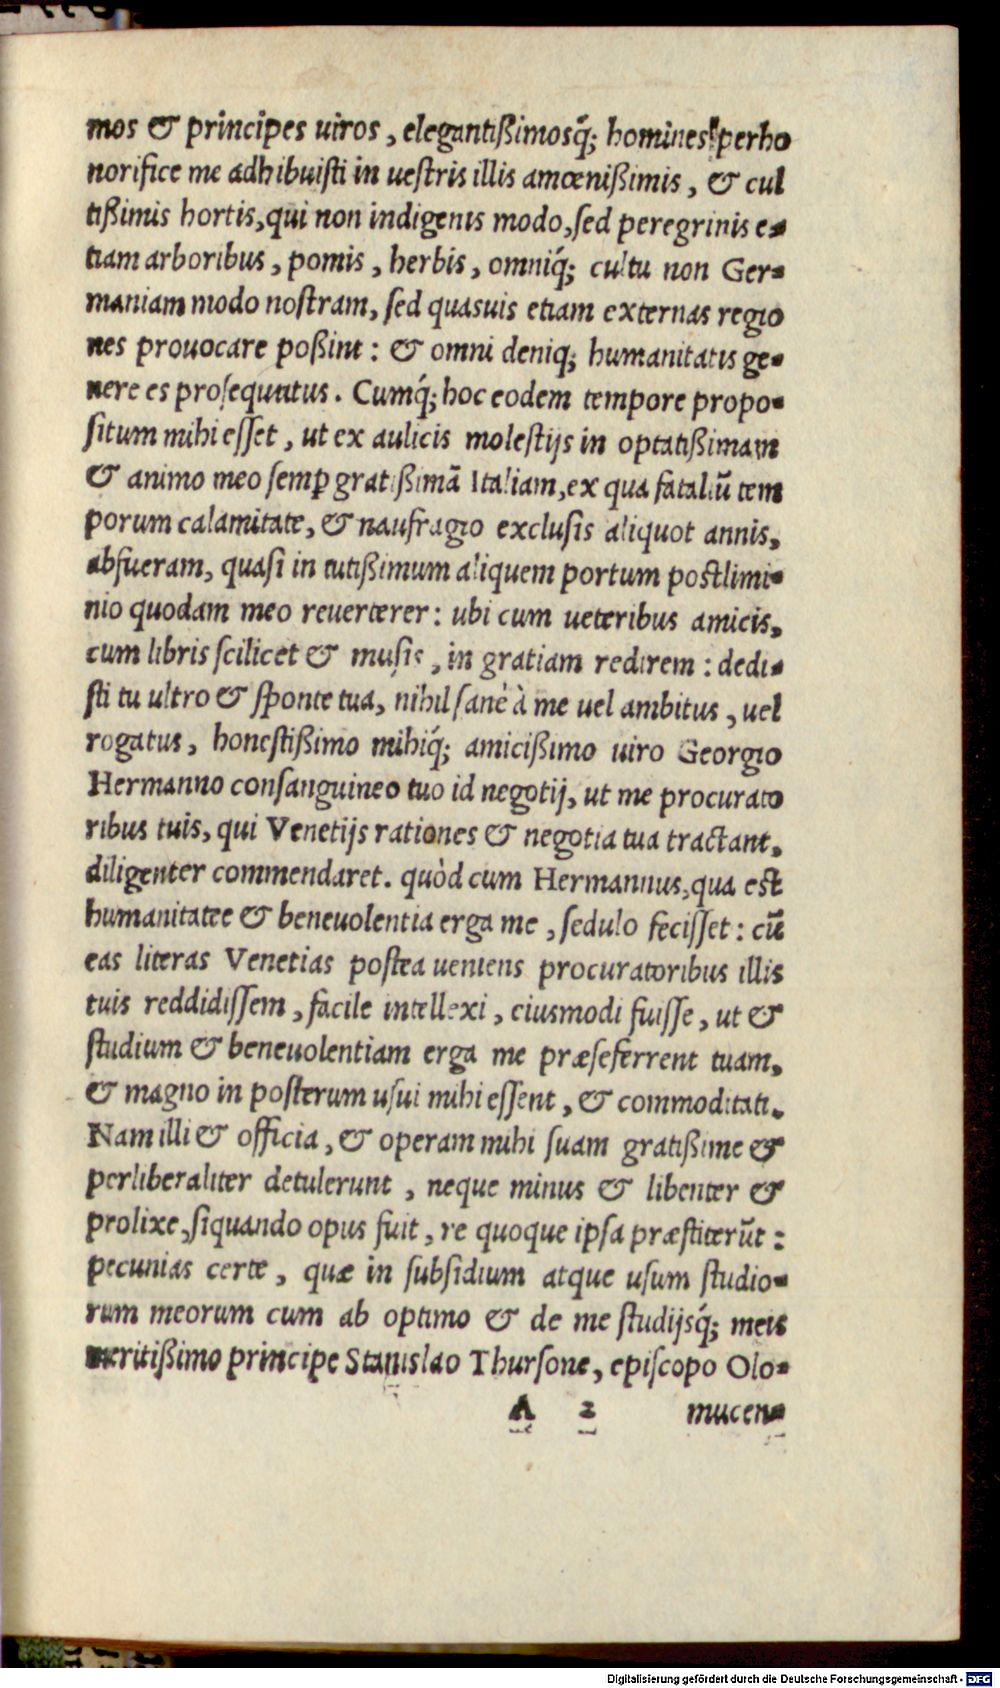 mos & principes uiros, elegantißimosq́; homines, perho
norifice me adhibuisti in uestris illis amœnißimis, & cul
tißimis hortis, qui non indigenis modo, sed peregrinis e-
tiam arboribus, pomis, herbis, omniq́; cultu non Ger-
maniam modo nostram, sed quasuis etiam externas regio
nes prouocare poßint: & omni deniq; humanitatis ge-
nere es prosequutus. Cumq́; hoc eodem tempore propo-
situm mihi esset, ut ex aulicis molestijs in optatißimam
& animo meo semꝑ gratißimā Italiam, ex qua fataliū tem
porum calamitate, & naufragio exclusis aliquot annis,
abfueram, quasi in tutißimum aliquem portum postlimi-
nio quodam meo reuerterer: ubi cum ueteribus amicis,
cum libris scilicet & musis, in gratiam redirem: dedi-
sti tu ultro & sponte tua, nihil sanè à me uel ambitus, uel
rogatus, honestißimo mihiq́; amicißimo uiro Georgio
Hermanno consanguineo tuo id negotij, ut me procurato
ribus tuis, qui Venetijs rationes & negotia tua tractant,
diligenter commendaret. quòd cum Hermannus, qua est
humanitate & beneuolentia erga me, sedulo fecisset: cū
eas literas Venetias postea ueniens procuratoribus illis
tuis reddidissem, facile intellexi, eiusmodi fuisse, ut &
studium & beneuolentiam erga me præseferrent tuam,
& magno in posterum usui mihi essent, & commoditati.
Nam illi & officia, & operam mihi suam gratißime &
perliberaliter detulerunt, neque minus & libenter &
prolixe, siquando opus fuit, re quoque ipsa præstiterūt:
pecunias certe, quæ in subsidium atque usum studio-
rum meorum cum ab optimo & de me studijsq́; meis
meritißimo principe Stanislao Thursone, episcopo Olo-
A 2 mucen-
Digitalisierung gefördert durch die Deutsche Forschungsgemeinschaft - DFG